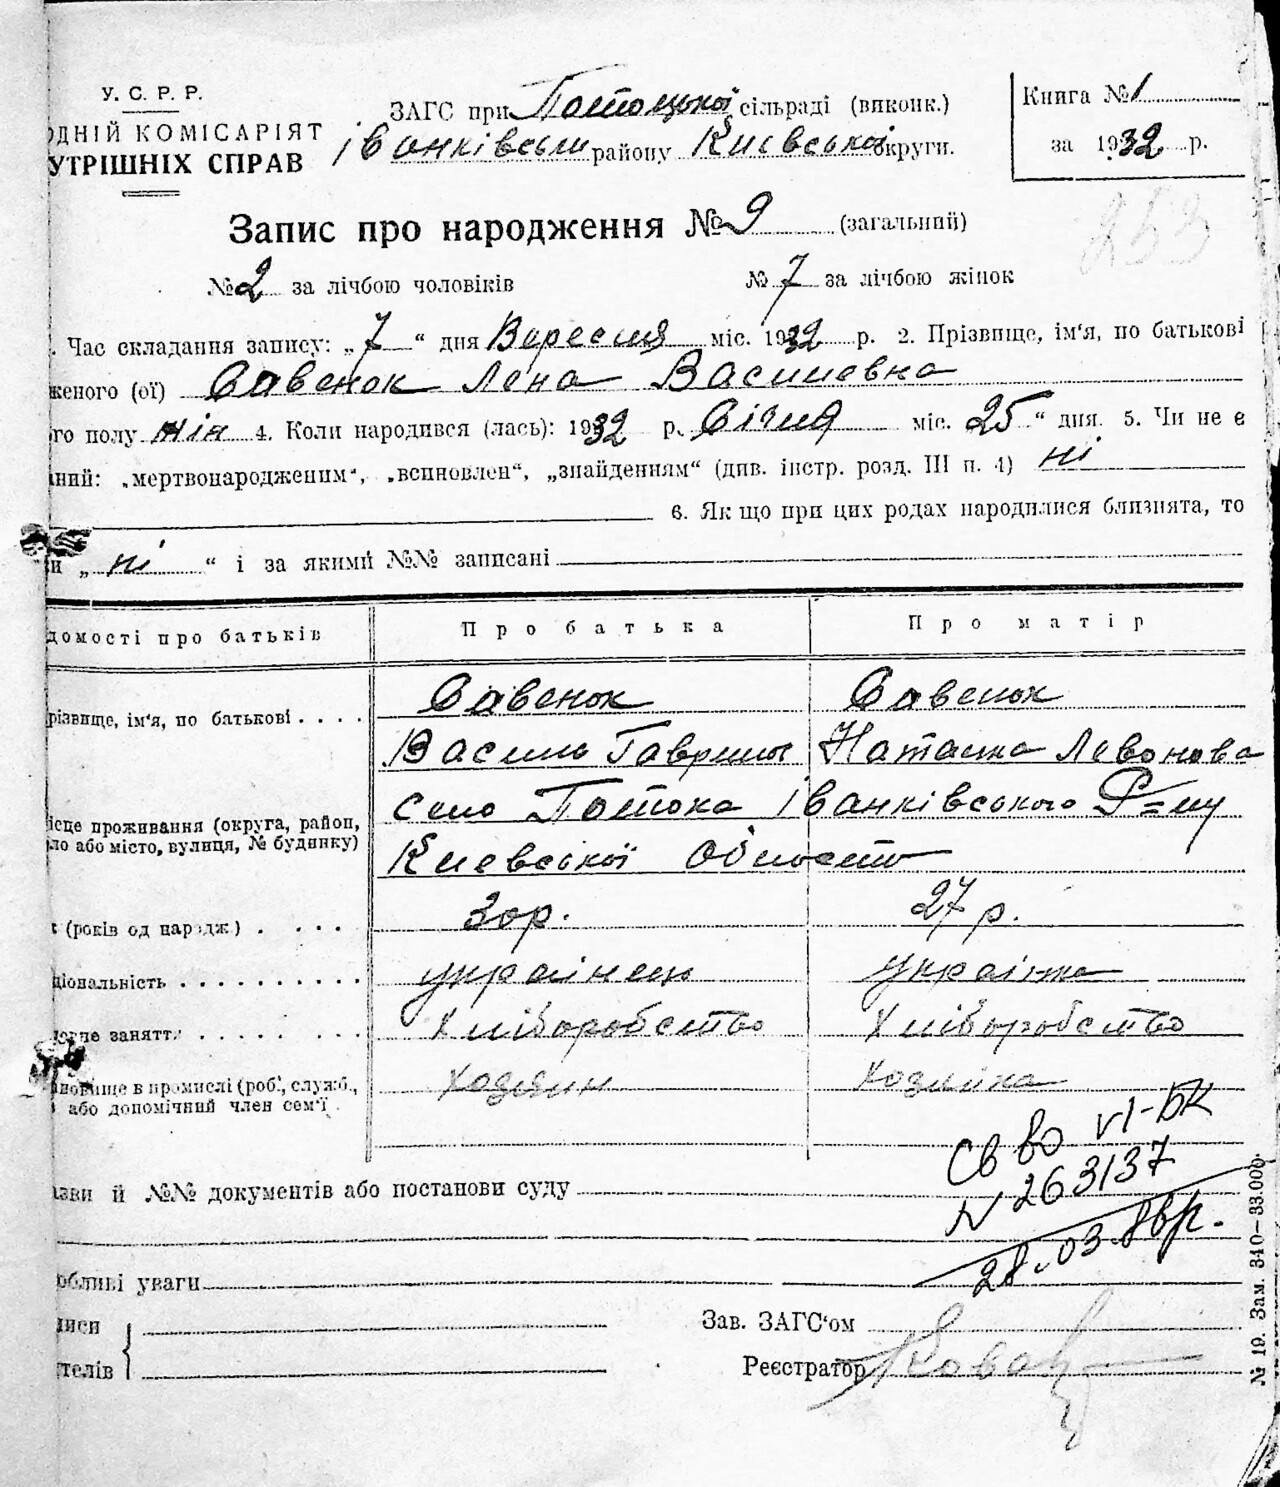 У. С. Р. Р.
ОДНІЙ КОМІСАРІЯТ
УТРІШНІХ СПРАВ
ЗАГС при Потоцької сільраді (виконк.)
Іванківськи району Киевської округи.
Книга № 1
за 1932 р.
253
Запис про народження № 9 (загальний)
№ 2 за лічбою чоловіків № 7 за лічбою жінок
Час складання запису: „ 7 “ дня Вересня міс. 1932 р. 2. Прізвище, ім‘я, по батькові
женого (ої) Савенок Лена Василевна
го полу жін 4. Коли народився (лась): 1932 р. Січня міс. 25 “ дня. 5. Чи не є
аний: „мертвонародженим“, „всиновлен“, „знайденням“ (див. інстр. розд. III п. 4) ні
6. Як що при цих родах народилися близнята, то
и „ ні “ і за якими №№ записані
домості про батьків Про батька Про матір
різвище, ім‘я, по батькові . . . . Савенок Савенок
Василь Гаврилы Наталка Левонова
ісце проживання (округа, район,
ло або місто, вулиця, № будинку)
село Потока Іванківського Р=ну
Киевської Області
(років од народж.) . . . . . 30р. 27 р.
ціональність . . . . . . . . . . українец українка
заняття . . . . . . . . Хліборобство Хліборобство
новище в промислі (роб., служб.,
або допомічний член сем‘ї . Хозяин Хозяйка
Св во VI-БК
N 263137
28.03.88р.
зви й №№ документів або постанови суду
обливі уваги
писи
телів
Зав. ЗАГС‘ом
Реєстратор
№ 19. Зам. 340—33.000.